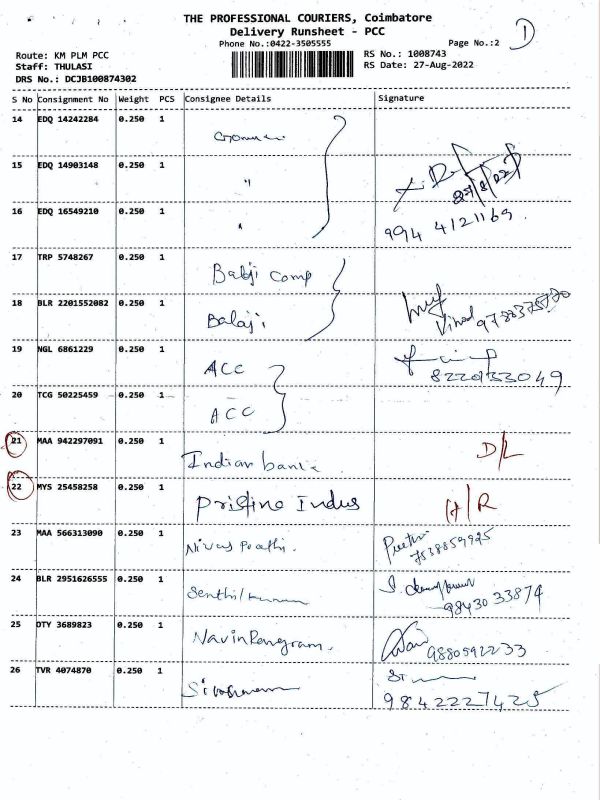 THE PROFESSIONAL COURIERS, Coimbatore
Delivery Runsheet - PCC
Phone No.:0422-3505555
Page No.:2 1
Route: KM PLM PCC
RS No.: 1008743
Staff: THULASI
RS Date: 27-Aug-2022
DRS No.: DCJB100874302
S No Consignment No Weight PCS Consignee Details Signature
14 EDQ 14242284 0.250 1
15 EDQ 14903148 0.250 1 "
16 EDQ 16549210 0.250 1 "
994 4121169
17 TRP 5748267 0.250 1 Balaji comp
18 BLR 2201552082 0.250 1 Balaji
19 NGL 6861229 0.250 1 ACC
8220133049
20 TCG 50225459 0.250 1 ACC
21 MAA 942297091 0.250 1 Indian bank D/L
22 MYS 25458258 0.250 1 Pristine Indus H/R
23 MAA 566313090 0.250 1
7538859925
24 BLR 2951626555 0.250 1 Senthilkumar
98430 33874
25 OTY 3689823 0.250 1 NavinRangram.
9880592233
26 TVR 4074870 0.250 1
9842227425